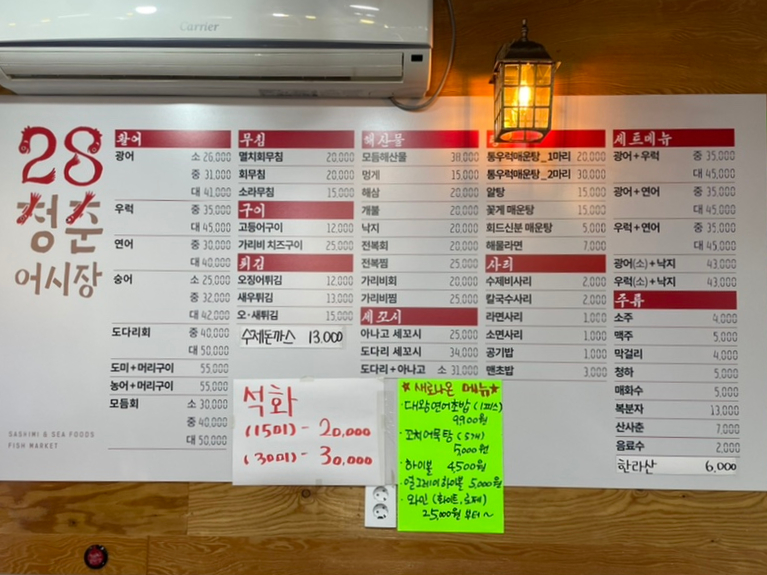 Carrier
28
청춘
어시장
SASHIMI & SEA FOODS
FISH MARKET
활어
광어 소 26,000
중 31,000
대 41,000
우럭 중 35,000
대 45,000
연어 중 30,000
대 40,000
숭어 소 25,000
중 32,000
대 42,000
도다리회 중 40,000
대 50,000
도미+머리구이 55,000
농어+머리구이 55,000
모듬회 소 30,000
중 40,000
대 50,000
무침
멸치회무침 20,000
회무침 20,000
소라무침 15,000
구이
고등어구이 12,000
가리비 치즈구이 25,000
튀김
오징어튀김 12,000
새우튀김 13,000
오·새튀김 15,000
수제돈까스 13,000
해산물
모듬해산물 38,000
멍게 15,000
해삼 20,000
개불 20,000
낙지 20,000
전복회 20,000
전복찜 25,000
가리비회 20,000
가리비찜 25,000
세꼬시
아나고 세꼬시 25,000
도다리 세꼬시 34,000
도다리+아나고 소 31,000
통우럭매운탕_1마리 20,000
통우럭매운탕_2마리 30,000
알탕 15,000
꽃게 매운탕 15,000
회드신분 매운탕 5,000
해물라면 7,000
사리
수제비사리 2,000
칼국수사리 2,000
라면사리 1,000
소면사리 1,000
공기밥 1,000
맨초밥 3,000
세트메뉴
광어+우럭 중 35,000
대 45,000
광어+연어 중 35,000
대 45,000
우럭+연어 중 35,000
대 45,000
광어(소)+낙지 43,000
우럭(소)+낙지 43,000
주류
소주 4,000
맥주 5,000
막걸리 4,000
청하 5,000
매화수 5,000
복분자 13,000
산사춘 7,000
음료수 2,000
한라산 6,000
석화
(15미) - 20,000
(30미) - 30,000
★새로나온 메뉴★
·대왕연어초밥 (1피스)
9900원
·꼬치어묵탕 (5개)
5,000원
·하이볼 4500원
·얼그레이하이볼 5,000원
·와인 (화이트,
25,000원 부터~